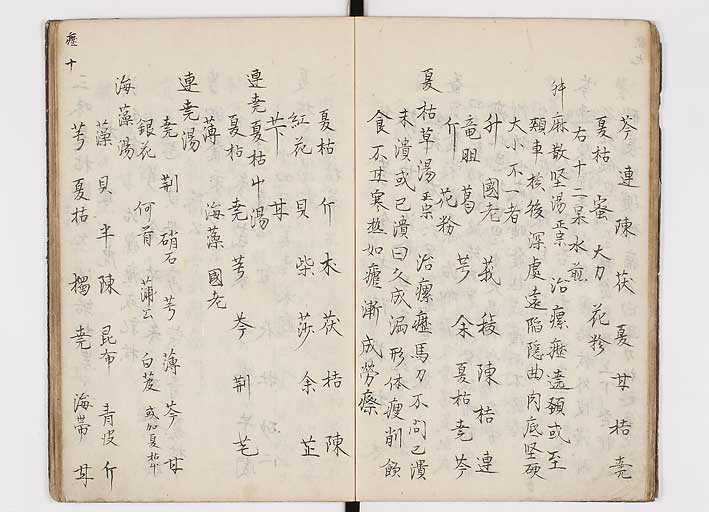 芩 連 陳 茯 夏 甘 桔 尭
夏枯 蛮 大刀 花粉
右十二味水煎
升麻散堅湯 正宗 治瘰癧遶頚或至
頬車於後深處遠陥隠曲肉底堅硬
大小不一者
升 國老 莪 稜 陳 桔 連
竜胆 葛 芎 余 夏枯 尭 芩
斤 花粉
夏枯草湯 正宗 治瘰癧馬刀不問已潰
未潰或已潰日久成漏形体痩削飲
食不甘寒熱如瘧漸成労瘵
夏枯 斤 木 茯 桔 陳
紅花 貝 柴 莎 余 芷
芐 甘
連尭夏枯艸湯
夏枯 尭 芎 芩 荆 芒
薄 海藻 國老
連尭湯
尭 荆 硝石 芎 薄 芩 甘
銀花 何首 蒲公 白芨 或加夏枯艸
海藻湯
藻 貝 半 陳 昆布 青皮 斤
芎 夏枯 獨 尭 海帯 甘
癧 十